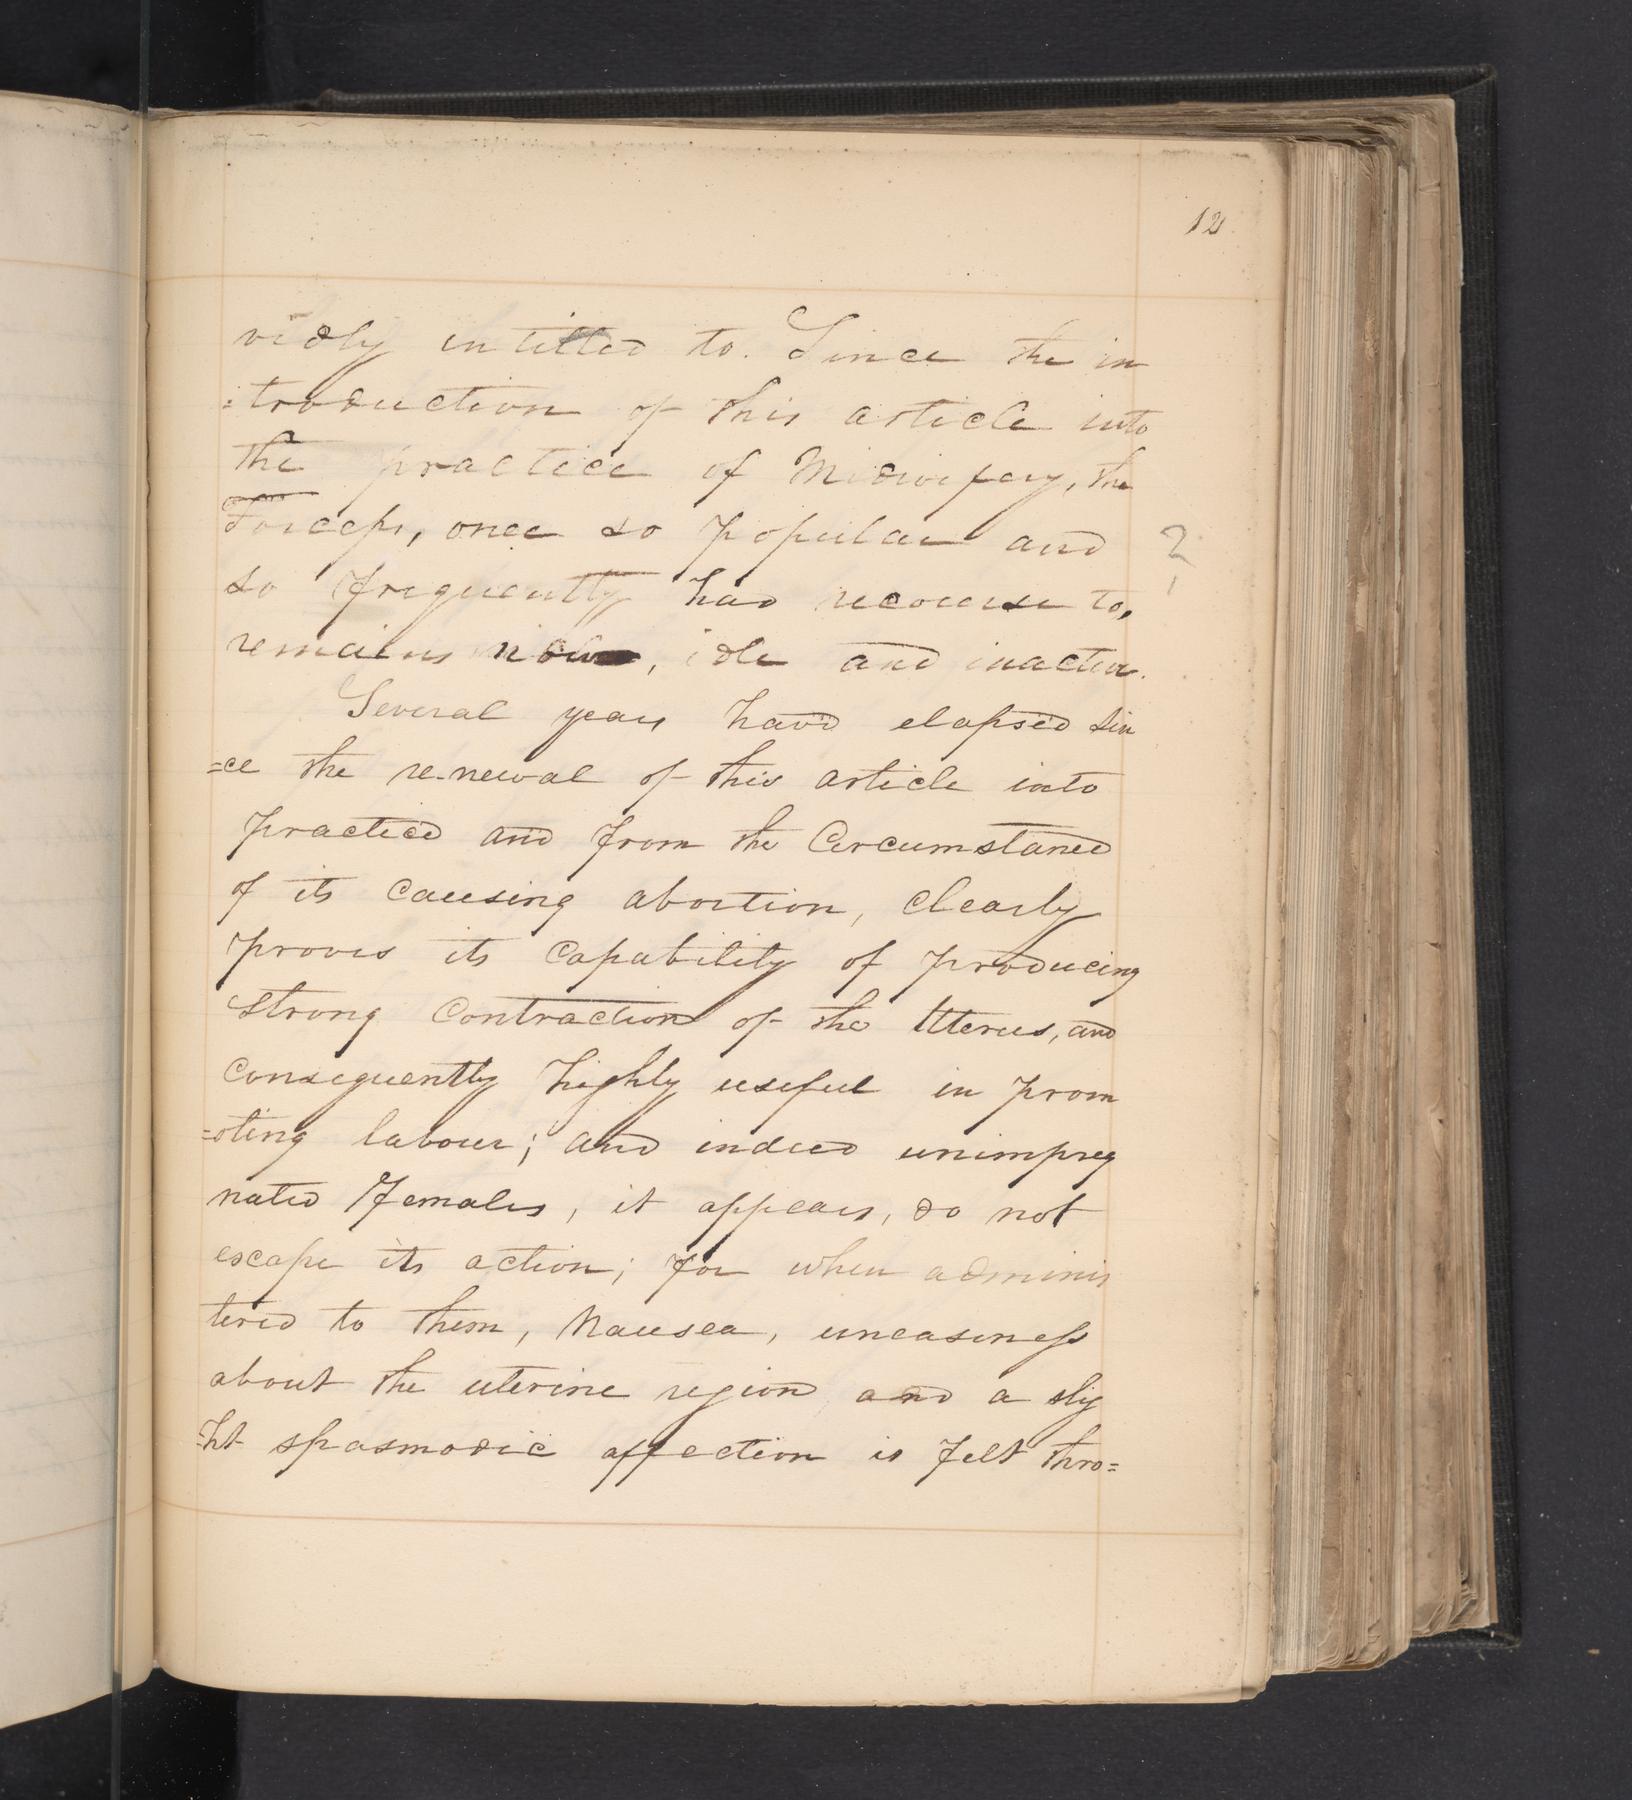 12
vidly intitled to. Since the in
=troduction of this article into
the practice of Midwifery, the
Forceps, once so popular and
?
so frequently had recourse to,
remains now, idle and inactive.
Several years have elapsed sin
=ce the re-newal of this article into
practice and from the Circumstance
of its causing abortion, clearly
proves its capability of producing
strong contraction of the Uterus, and
consequently highly useful in prom
=oting labour; and indeed unimpreg
nated Females, it appears, do not
escape its action; for when adminis
tered to them, Nausea, uneasiness
about the uterine region, and a slig
=ht spasmodic affection is felt thro=